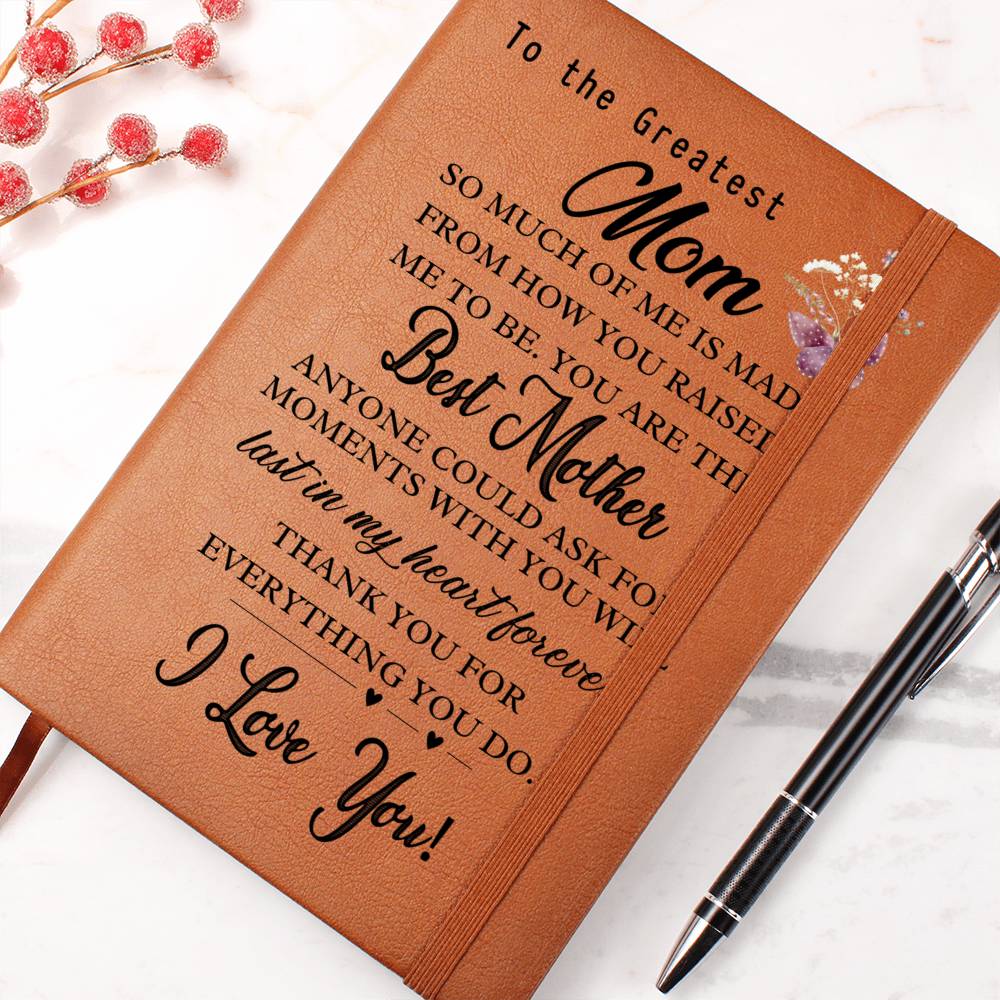 To the Greatest
Mom
SO MUCH OF ME IS MAD
FROM HOW YOU RAISED
ME TO BE. YOU ARE THE
Best Mother
ANYONE COULD ASK FO
MOMENTS WITH YOU WI
last in my heart foreve
THANK YOU FOR
EVERYTHING YOU DO.
I Love You!